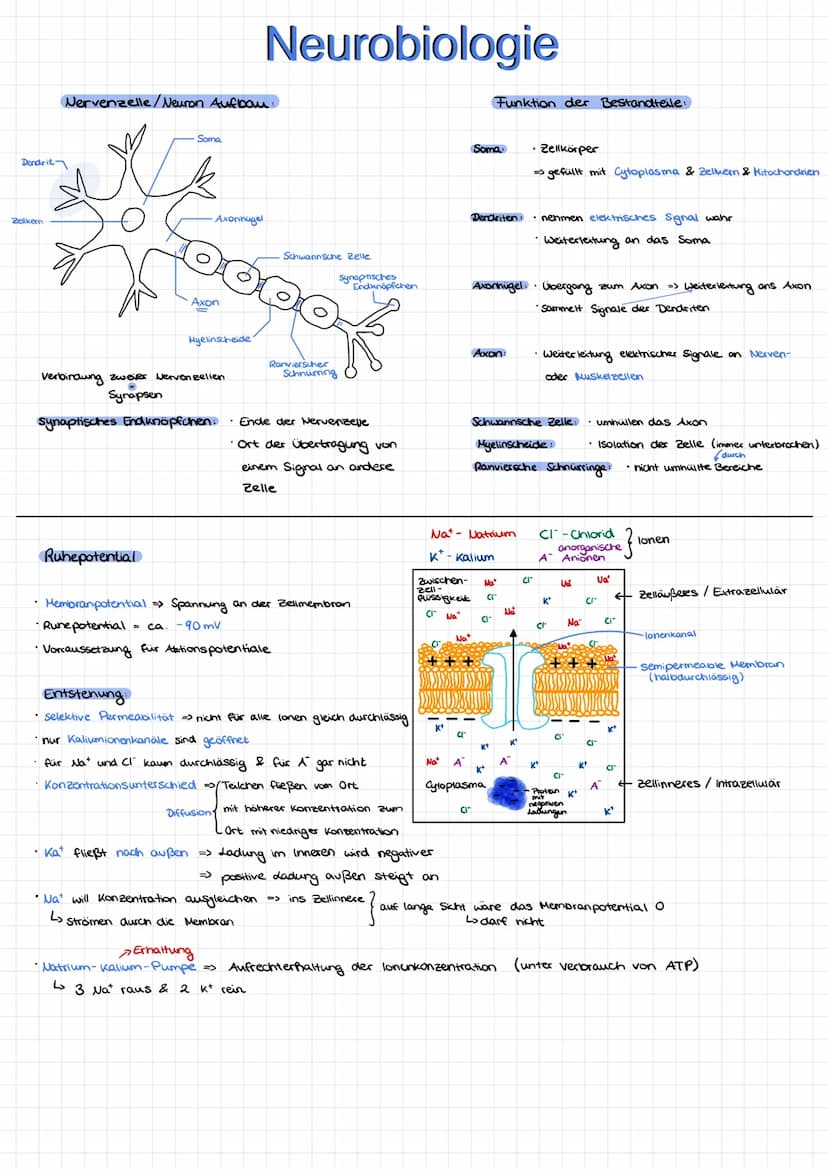 Neurobiologie
Nervenzelle/Neuron Aufbau:
Soma
Dendrit
Zellkern
Axonhügel
Schwannsche Zelle
Synaptisches
Endknöpfchen
Axon
Myelinscheide
Ranvierscher
Schnürring
Verbindung zweier Nervenzellen
Synapsen
Synaptisches Endknöpfchen: · Ende der Nervenzelle
· Ort der Übertragung von
einem Signal an andere
Zelle
Funktion der Bestandteile:
Soma: · Zellkörper
=> gefüllt mit Cytoplasma & Zellkern & Mitochordrien
Dendriten: · nehmen elektrisches Signal wahr
· Weiterleitung an das Soma
Axonhügel: · Übergang zum Axon => Weiterleitung ans Axon
· sammelt Signale der Dendriten
Axon: · Weiterleitung elektrischer Signale an Nerven-
oder Muskelzellen
Schwannsche Zelle: · umhüllen das Axon
Myelinscheide: · Isolation der Zelle (immer unterbrochen)
durch
Ranviersche Schnürringe: · nicht umhüllte Bereiche
Ruhepotential
· Membranpotential => Spannung an der Zellmembran
· Ruhepotential = ca. -90mV
· Vorraussetzung für Aktionspotentiale
Entstehung:
· selektive Permeabilität => nicht für alle Ionen gleich durchlässig
· nur Kaliumionenkanäle sind geöffnet
· für Na⁺ und Cl⁻ kaum durchlässig & für A⁻ gar nicht
· Konzentrationsunterschied => Teilchen fließen vom Ort
Diffusion mit höherer Konzentration zum
Ort mit niedriger Konzentration
· Ka⁺ fließt nach außen => Ladung im Inneren wird negativer
=> positive Ladung außen steigt an
· Na⁺ will Konzentration ausgleichen => ins Zellinnere
↳ Strömen durch die Membran
auf lange Sicht wäre das Membranpotential 0
↳ darf nicht
↗ Erhaltung
· Natrium-Kalium-Pumpe => Aufrechterhaltung der Ionunkonzentration (unter Verbrauch von ATP)
↳ 3 Na⁺ raus & 2 K⁺ rein
Na⁺ - Natrium Cl⁻ - Chlorid
K⁺ - Kalium A⁻ anorganische Anionen
} Ionen
Zwischen-
zell-
flüssigkeit
Na⁺ Cl⁻ Na⁺ Na⁺
Cl⁻ K⁺ Cl⁻
Cl⁻ Na⁺ Cl⁻ Na⁺ Cl⁻ Na⁺ Cl⁻
Na⁺ Cl⁻ Na⁺ Cl⁻ Na⁺
← Zelläußeres / Extrazellulär
Ionenkanal
+ + + + + +
semipermeable Membran
(halbdurchlässig)
K⁺ Cl⁻ K⁺ K⁺ Cl⁻ Cl⁻ K⁺
Na⁺ A⁻ K⁺ A⁻ K⁺ Cl⁻ K⁺ Cl⁻
Cytoplasma
Protein
mit
negativen
Ladungen
K⁺ A⁻
Cl⁻ K⁺
← Zellinneres / Intrazellulär